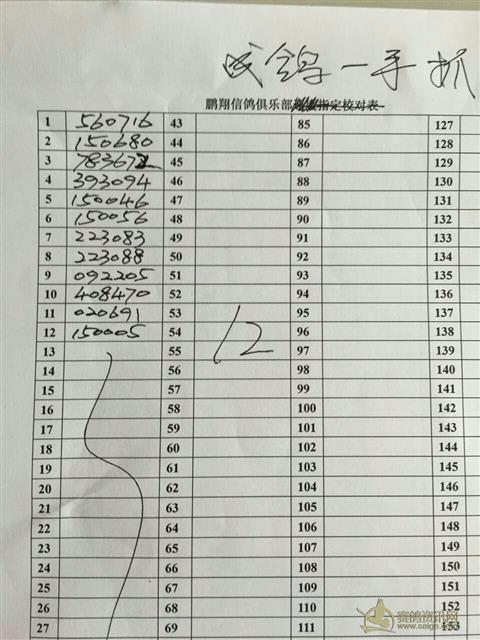 成鸽一手抓
鹏翔信鸽俱乐部指定校对表
1 560716 43 85 127
2 150680 44 86 128
3 783672 45 87 129
4 393094 46 88 130
5 150046 47 89 131
6 150056 48 90 132
7 223083 49 91 133
8 223088 50 92 134
9 092205 51 93 135
10 408470 52 94 136
11 020691 53 95 137
12 150005 54 12 96 138
13 55 97 139
14 56 98 140
15 57 99 141
16 58 100 142
17 59 101 143
18 60 102 144
19 61 103 145
20 62 104 146
21 63 105 147
22 64 106 148
23 65 107 149
24 66 108 150
25 67 109 151
26 68 110 152
27 69 111 153
赛鸽资讯网
www.saige.com